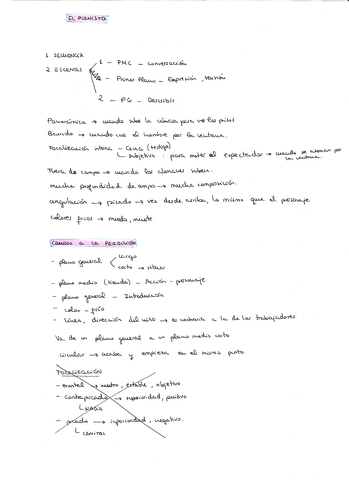 EL PIANISTA
1 SECUENCIA
2 ESCENAS
1 - PML - conversación
- Primer Plano - Expresión, tensión
2 - PG - Describir
Panorámica → cuando sube la cámara para los pisos
Barrido → cuando cae el hombre por la ventana.
Focalización interna - Cero (testigo)
subjetivo: para meter al espectador → cuando se asoman por la ventana
Fuera de campo → cuando los alemanes suben.
mucha profundidad de campo → mucha composición.
angulación → picado → vea desde arriba, lo mismo que el personaje
colores fríos → miedo, muerte.
CAMINO A LA PERDICIÓN
- plano general
largo
corto →
- plano medio - Acción - personaje
- plano general - Introducción
- color - frío
- Línea, dirección del niño → es contraria a la de los trabajadores
Va de un plano general a un plano medio corto
circular → acaba y empieza en el mismo punto.
FOCALIZACIÓN
- frontal → neutro, estable, objetivo
- contrapicado → superioridad, positivo
- picado → inferioridad, negativo.